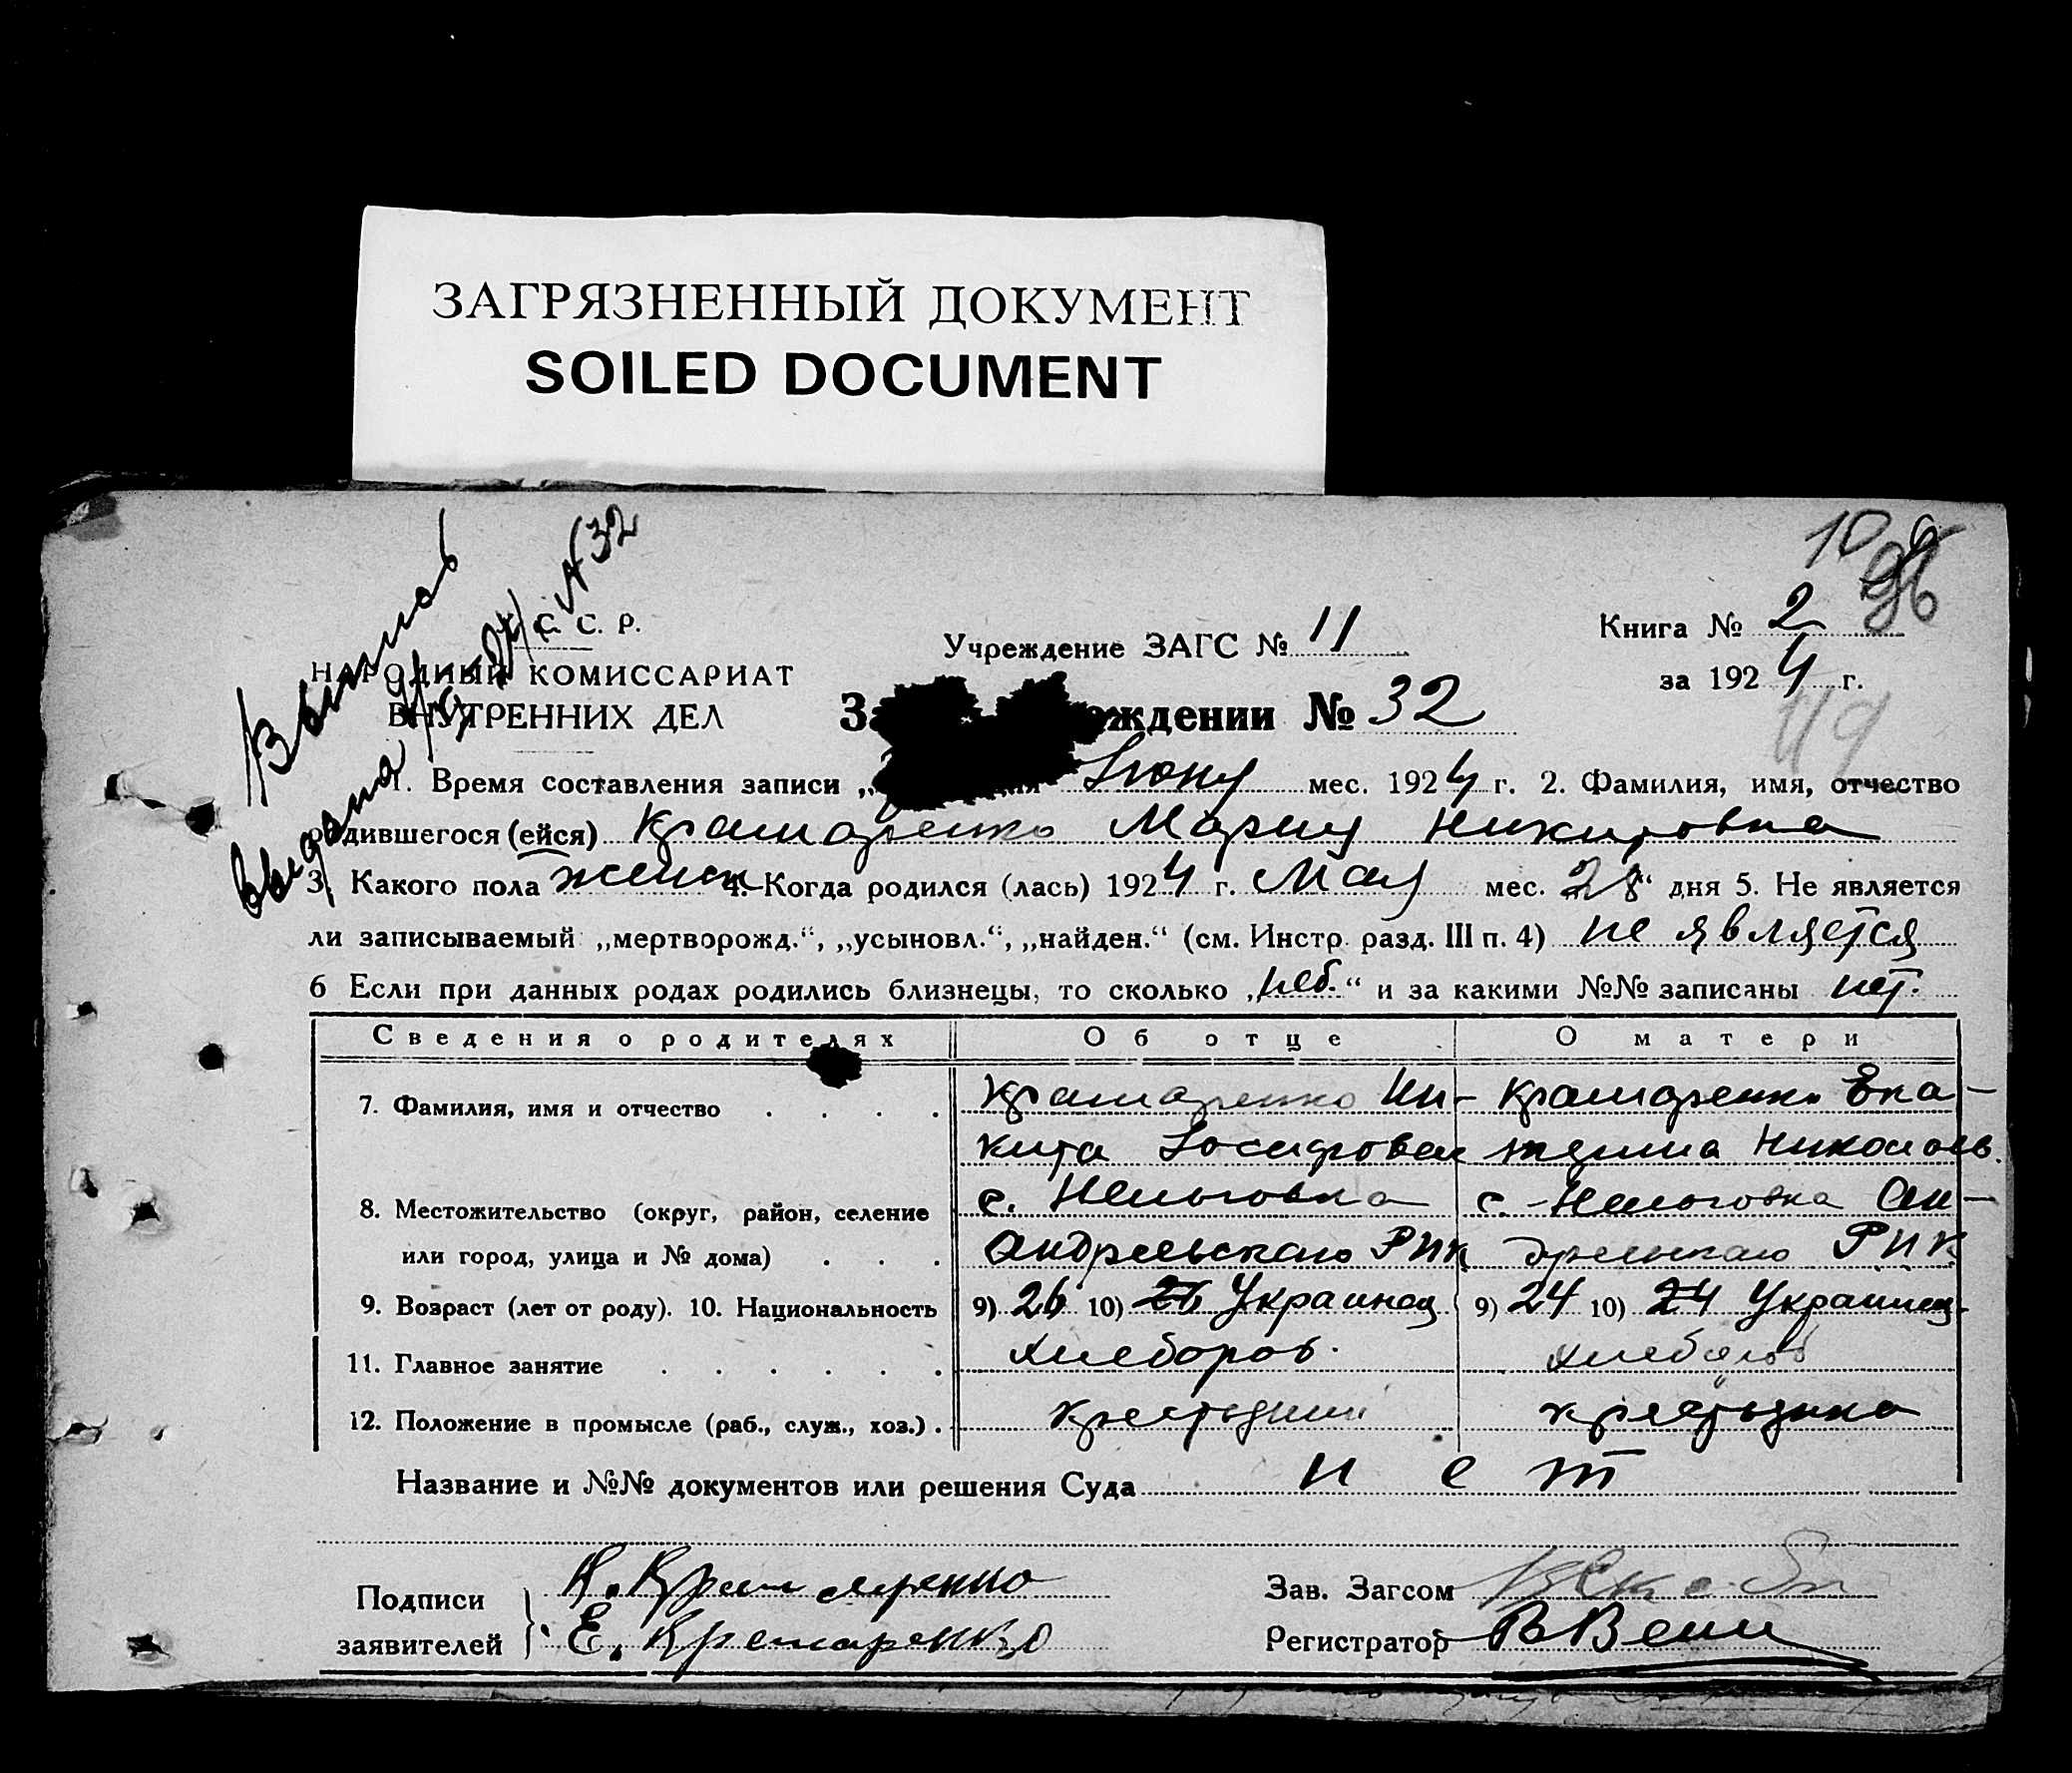 ЗАГРЯЗНЕННЫЙ ДОКУМЕНТ
SOILED DOCUMENT
С. С. Р.
НАРОДНЫЙ КОМИССАРИАТ
ВНУТРЕННИХ ДЕЛ
№ 32
Учреждение ЗАГС № 11
Книга № 2
за 1924 г.
ждении № 32
1. Время составления записи „ Июня мес. 1924 г. 2. Фамилия, имя, отчество
родившегося (ейся) Крамаренко Мария Никитовна
3. Какого пола женск 4. Когда родился (лась) 1924 г. Мая мес. 28“ дня 5. Не является
ли записываемый „мертворожд.“, „усыновл.“, „найден.“ (см. Инстр. разд. III п. 4) не является
6 Если при данных родах родились близнецы, то сколько „ “ и за какими №№ записаны нет.
Сведения о родителях Об отце О матери
7. Фамилия, имя и отчество . . . . Крамаренко Ни- Крамаренко Ека-
кита Иосифович терина Николаев.
8. Местожительство (округ, район, селение с. Нельговка с. Нельговка Ан-
или город, улица и № дома) . . . Андреевскаго РИК дреевскаго РИК
9. Возраст (лет от роду). 10. Национальность 9) 26 10) 26 Украинец 9) 24 10) 24 Украинец.
11. Главное занятие . . . . . . хлебороб. хлебороб
12. Положение в промысле (раб., служ., хоз.) . крестьянин крестьянка
Название и №№ документов или решения Суда нет
Подписи заявителей
Н. Крамаренко
Е. Крамаренко
Зав. Загсом
Регистратор